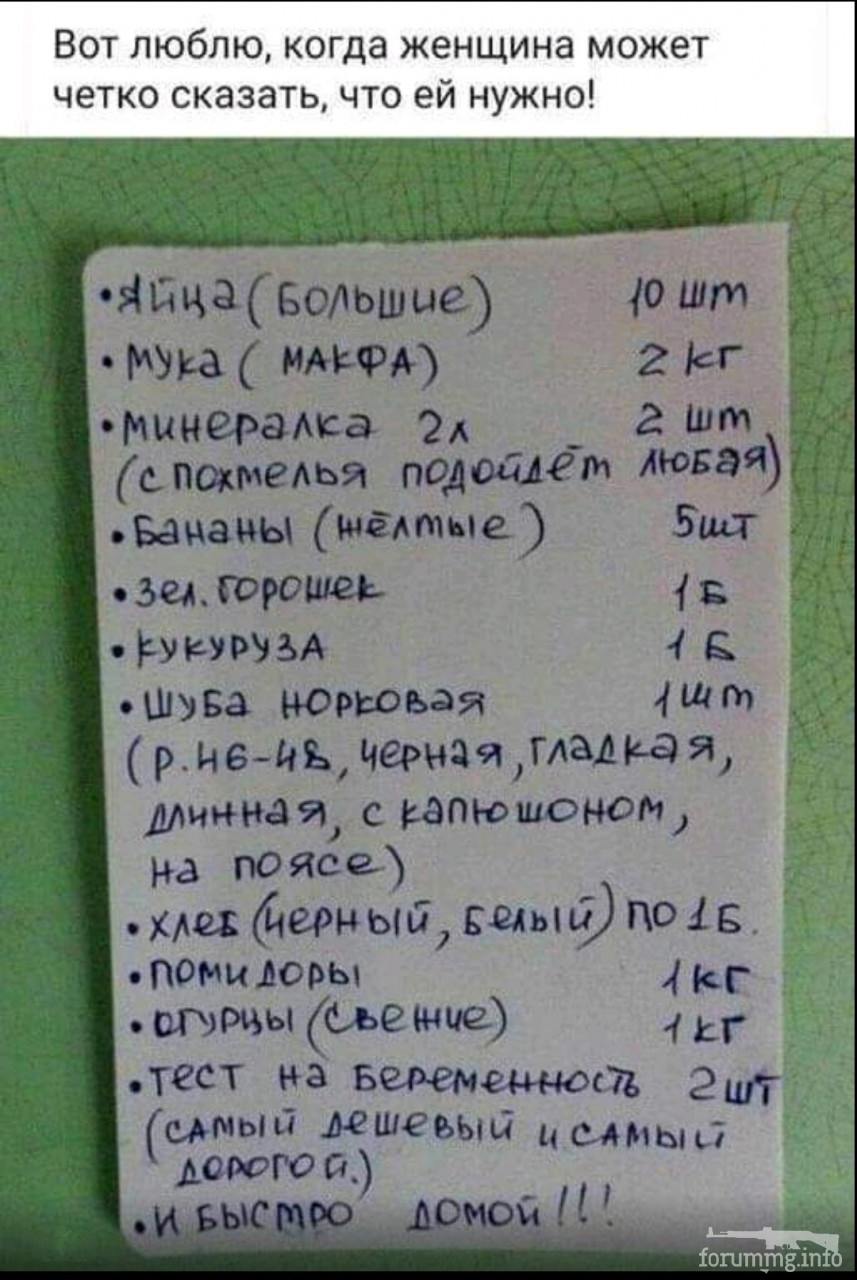 Вот люблю, когда женщина может
четко сказать, что ей нужно!
•Яйца (большие) 10 шт
•мука (МАКФА) 2 кг
•минералка 2л 2 шт
(с похмелья подойдёт любая)
•Бананы (жёлтые) 5шт
•зел. горошек 1 Б
•кукуруза 1 Б
•Шуба норковая 1 шт
(р.46-48, черная, гладкая,
длинная, с капюшоном,
на поясе)
•хлеб (черный, белый) по 1Б.
•помидоры 1 кг
•огурцы (свежие) 1 кг
•тест на беременность 2 шт
(самый дешевый и самый
дорогой.)
•И быстро домой!!!
forummg.info